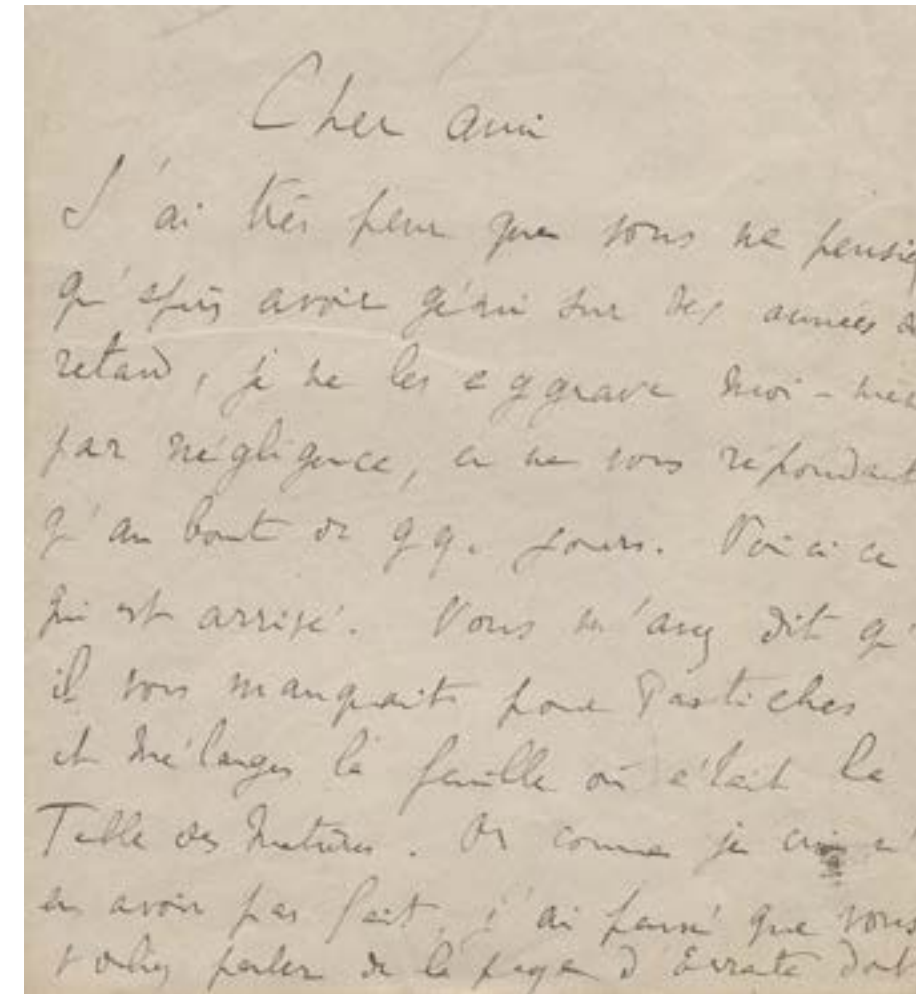 Cher ami
J'ai très peur que vous ne pensiez
qu'après avoir gémi sur des années de
retard, je ne les aggrave moi-mê
par négligence, en ne vous répondant
qu'au bout de qq. jours. Voici ce
qui est arrivé. Vous m'avez dit qu'
il vous manquait pour Pastiches
et Mélanges la feuille où était la
Table des Matières. Or comme je crois n'
en avoir pas fait, j'ai pensé que vous
vouliez parler de la page d'Errata dont